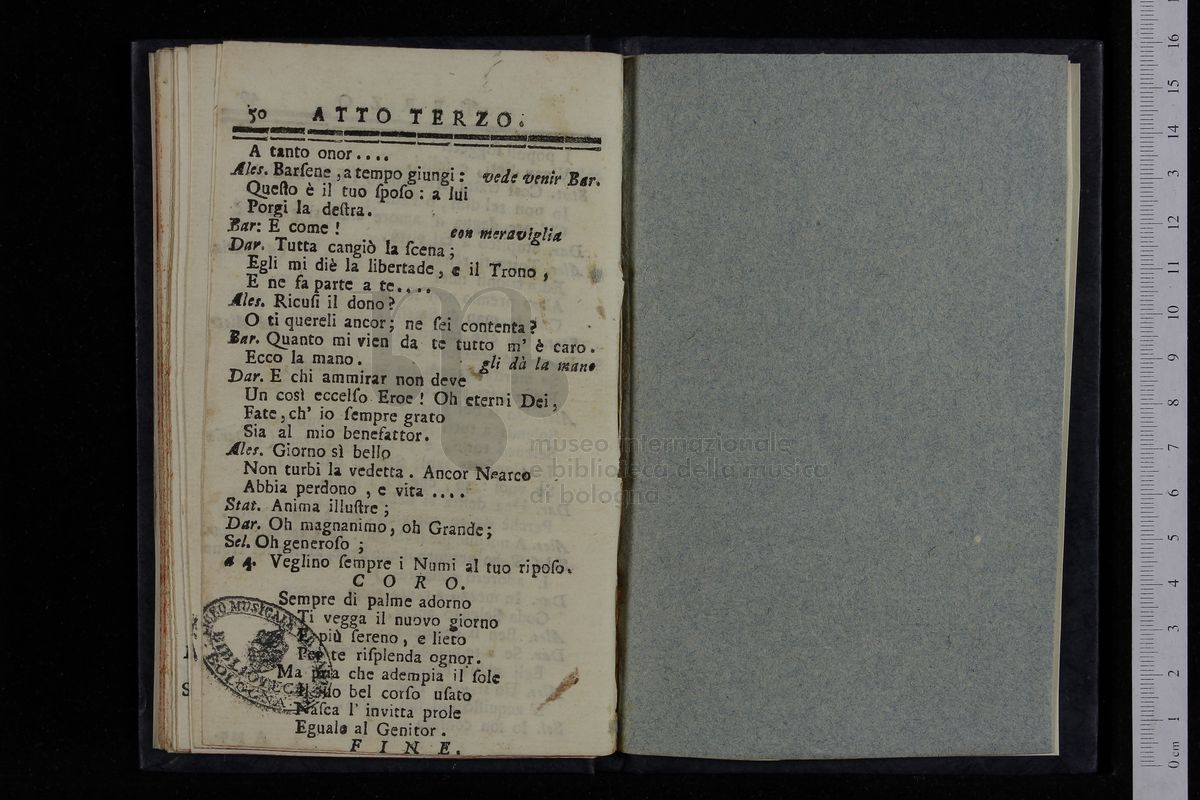 50 ATTO TERZO.
A tanto onor....
Ales. Barſene, a tempo giungi: vede venir Bar.
Queſto è il tuo ſpoſo: a lui
Porgi la deſtra.
Bar: E come! con meraviglia
Dar. Tutta cangiò la ſcena;
Egli mi diè la libertade, e il Trono,
E ne fa parte a te....
Ales. Ricuſi il dono?
O ti quereli ancor; ne ſei contenta?
Bar. Quanto mi vien da te tutto m' è caro.
Ecco la mano. gli dà la mano
Dar. E chi ammirar non deve
Un così eccelſo Eroe! Oh eterni Dei,
Fate, ch' io ſempre grato
Sia al mio benefattor.
Ales. Giorno sì bello
Non turbi la vedetta. Ancor Nearco
Abbia perdono, e vita ....
Stat. Anima illuſtre;
Dar. Oh magnanimo, oh Grande;
Sel. Oh generoſo;
a 4. Veglino ſempre i Numi al tuo ripoſo.
CORO.
Sempre di palme adorno
Ti vegga il nuovo giorno
E più ſereno, e lieto
Per te riſplenda ognor.
Ma pria che adempia il ſole
Il ſuo bel corſo uſato
Naſca l' invitta prole
Eguale al Genitor.
FINE.
LICEO MUSICALE
BIBLIOTECA
BOLOGNA
museo internazionale
e biblioteca della musica
di bologna
0 cm 1 2 3 4 5 6 7 8 9 10 11 12 13 14 15 16